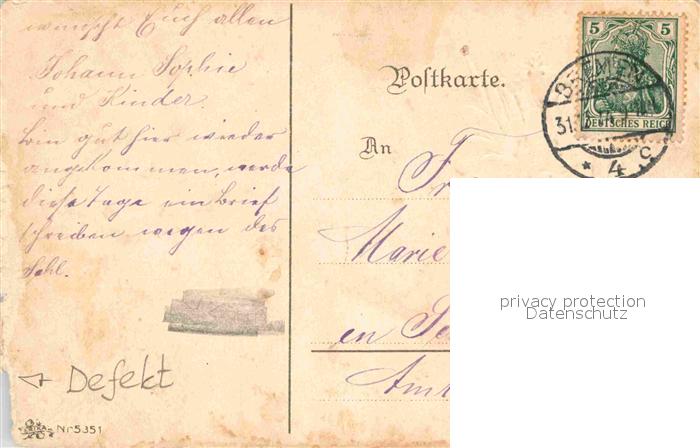 wünscht Euch allen
Johann Sophie
und Kinder.
Bin gut hier wieder
angekommen, werde
diese Tage ein Brief
schreiben wegen des
Sahl.
Defekt
Nr 5351
Postkarte.
An
Marie
en
Amt
5 5
DEUTSCHES REICH
BREMEN
31.
* 4 c
privacy protection
Datenschutz